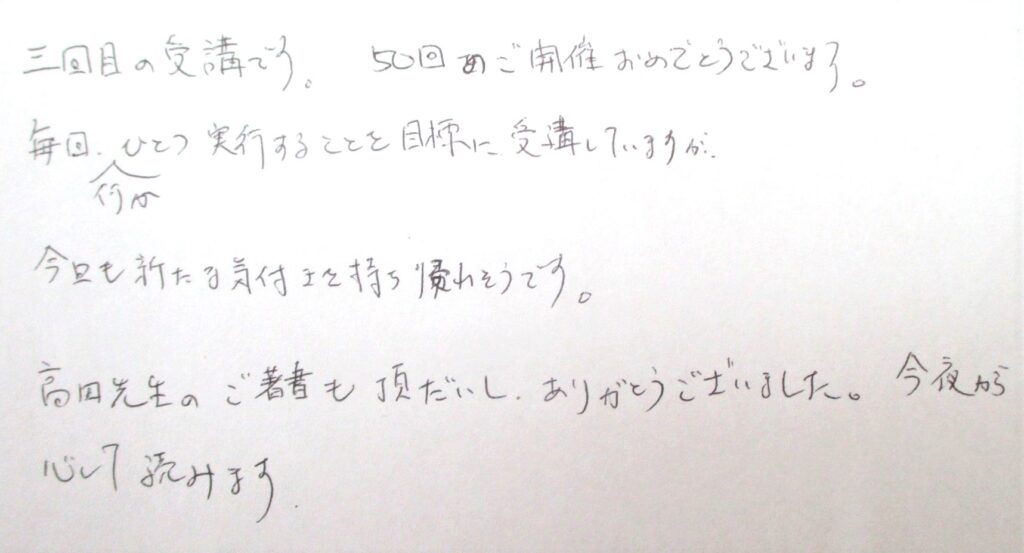 三回目の受講です。 50回めご開催おめでとうございます。
毎回、ひとつ実行することを目標に受講していますが、
何か
今日も新たな気付きを持ち帰れそうです。
高田先生のご著書も頂だいし、ありがとうございました。今夜から
心して読みます。